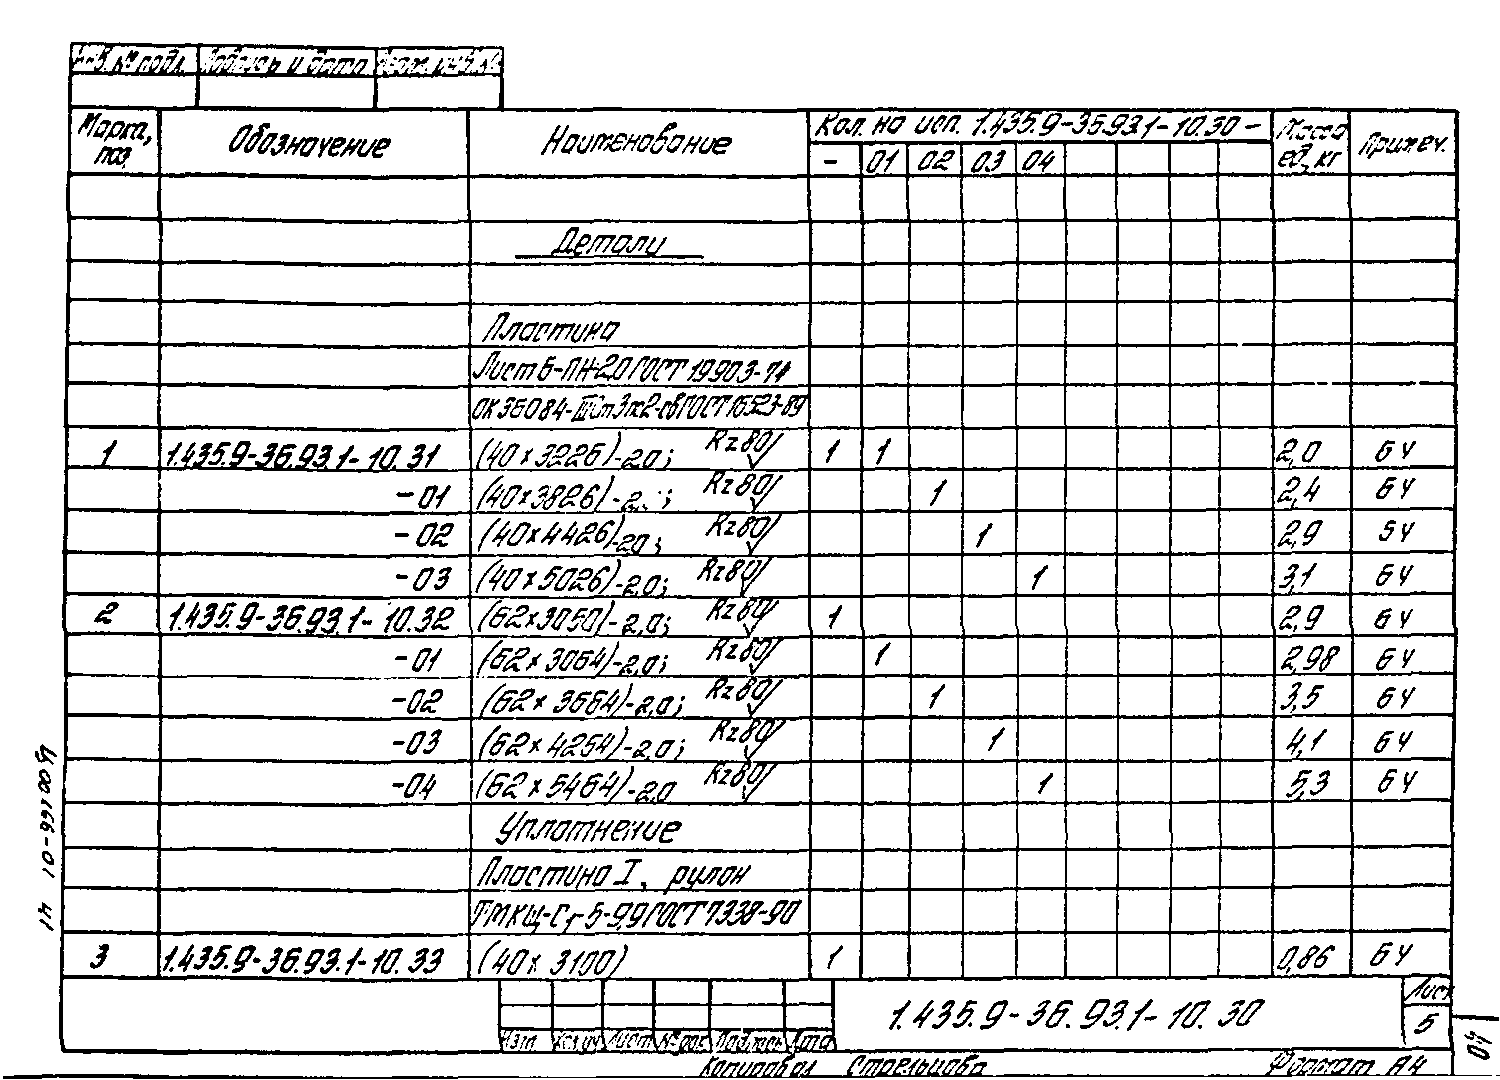 Инв. № подл. Подпись и дата Взам. инв. №
Марка, поз. Обозначение Наименование Кол. на исп. 1.435.9-36.93.1-10.30 - Масса ед, кг Примеч.
- 01 02 03 04
Детали
Пластина
Лист Б-ПН-2,0 ГОСТ 19903-74
ОК360В4-III Ст3пс2-св ГОСТ 16523-89
1 1.435.9-36.93.1-10.31 (40×3226)-2,0; Rz80 1 1 2,0 БЧ
-01 (40×3826)-2, ; Rz80 1 2,4 БЧ
-02 (40×4426)-2,0; Rz80 1 2,9 БЧ
-03 (40×5026)-2,0; Rz80 1 3,1 БЧ
2 1.435.9-36.93.1-10.32 (62×3050)-2,0; Rz80 1 2,9 БЧ
-01 (62×3064)-2,0; Rz80 1 2,98 БЧ
-02 (62×3664)-2,0; Rz80 1 3,5 БЧ
-03 (62×4264)-2,0; Rz80 1 4,1 БЧ
-04 (62×5464)-2,0 Rz80 1 5,3 БЧ
Уплотнение
Пластина I, рулон
ТМКЩ-С1-5-9,9 ГОСТ 7338-90
3 1.435.9-36.93.1-10.33 (40×3100) 1 0,86 БЧ
1.435.9-36.93.1-10.30
Лист
5
Изм. Кол.уч Лист № док Подпись Дата
Копировал Стрельцова Формат А4
04